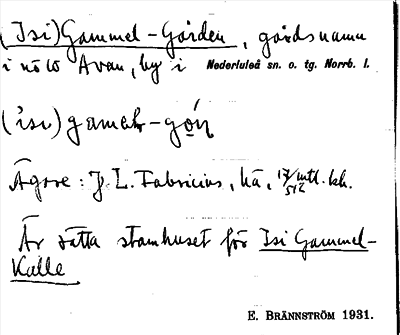 (Isi) Gammel-Gården, gårdsnamn
i nö lo Avan, by i Nederluleå sn. o. tg. Norrb. l.
('isı) gamələ-gọ́ṇ
Ägare: J. L. Fabricius, hä, 17/512 mtl. kh.
Är rätta stamhuset för Isi Gammel-
Kalle
E. BRÄNNSTRÖM 1931.